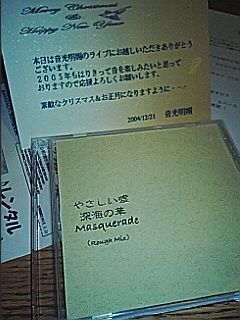 Merry Christmas
&
Happy New Year
本日は音光明媚のライブにお越しいただきありがとう
ございます。
2005年もはりきって音を楽しみたいと思って
おりますので応援よろしくお願いします。
素敵なクリスマス&お正月になりますように・・・
2004/12/21 音光明媚
やさしい愛
深海の華
Masquerade
(Rough Mix)